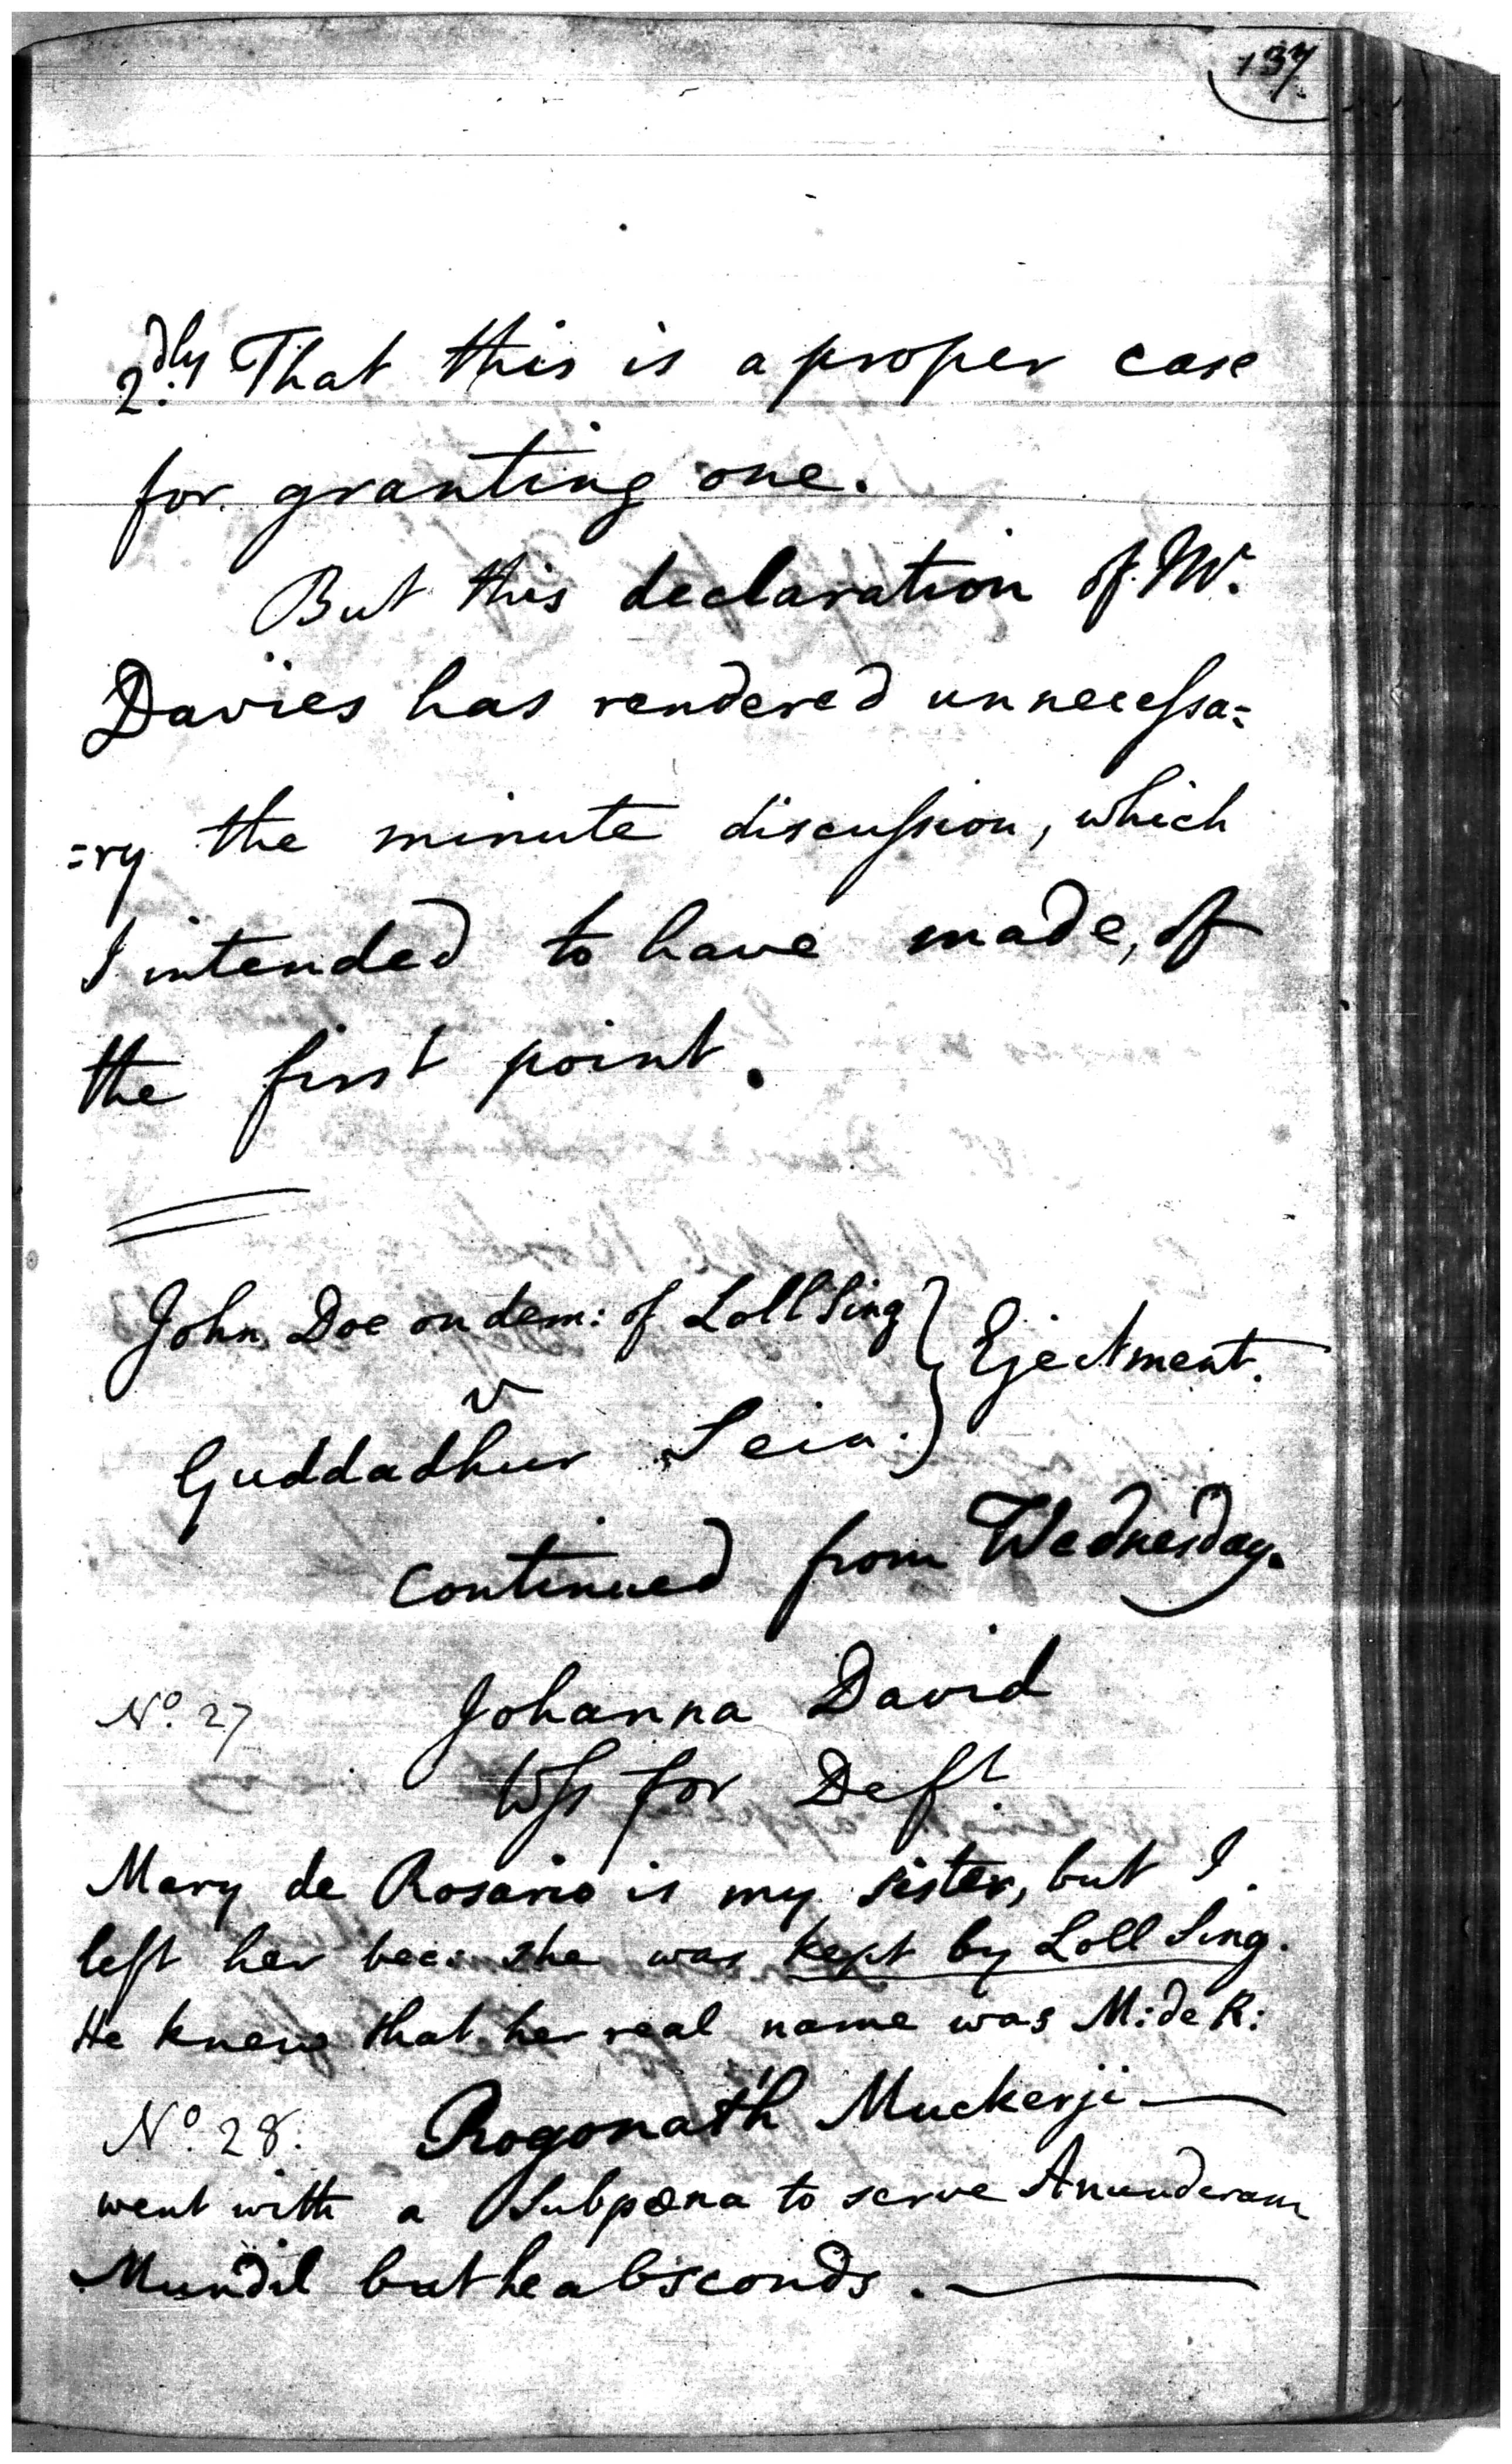 137
2.dly That this is a proper case
for granting one.
But this declaration of Mr.
Davies has rendered unnecessa=
=ry the minute discussion, which
I intended to have made, of
the first point.
John Doe on dem: of Loll Sing } Ejectment.
v
Guddadhur Sein.
continued from Wednesday.
No. 27 Johanna David
Wss for Deft
Mary de Rosario is my sister, but I
left her bec: she was kept by Loll Sing.
He knew that her real name was M: de R:
No. 28. Rogonath Muckerji
went with a Subpœna to serve Anunderam
Mundil but he absconds.